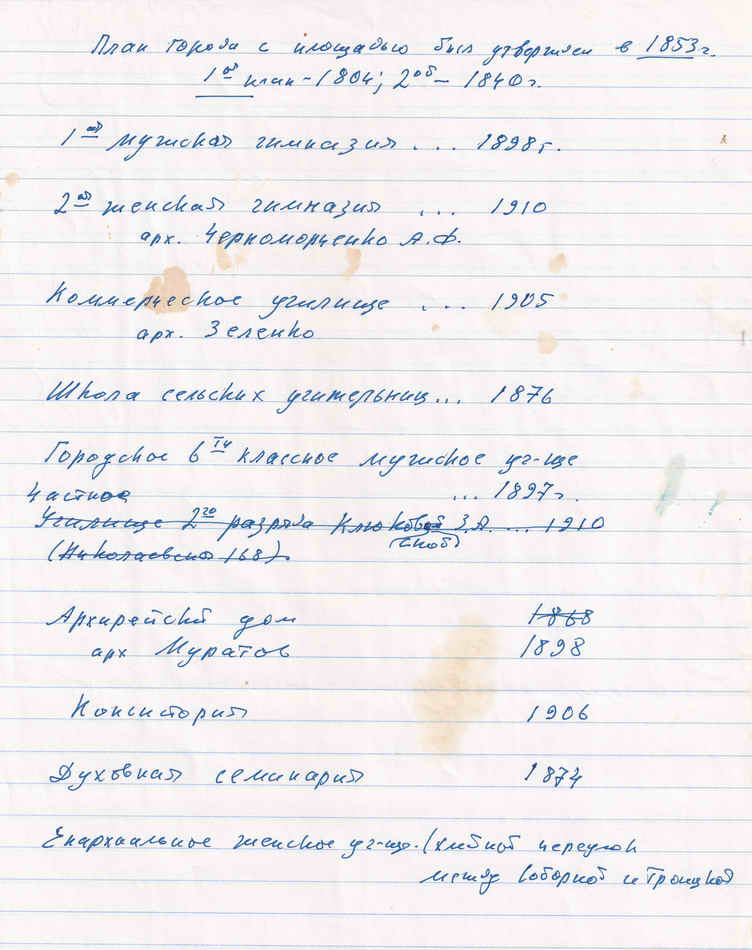 План города с площадью был утвержден в 1853 г.
1ый план - 1804; 2ой - 1840 г.
1ая мужская гимназия ... 1898 г.
2ая женская гимназия ... 1910
арх. Черноморченко А.Ф.
Коммерческое училище ... 1905
арх. Зеленко
Школа сельских учительниц ... 1876
Городское 6ти классное мужское уч-ще
частное ... 1897 г.
Училище 2го разряда Клюковой З.А. ... 1910
(ской)
(Николаевская 168).
Архирейский дом 1868
арх Муратов 1898
Консистория 1906
Духовная семинария 1874
Епархиальное женское уч-ще. (хлебной переулок
между Соборной и Троицкой